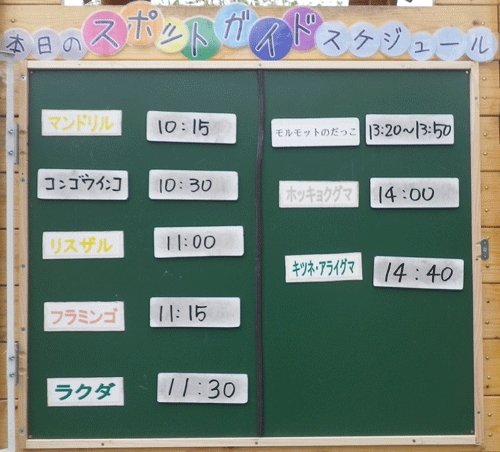 本日のスポットガイドスケジュール
マンドリル 10:15
コンゴウインコ 10:30
リスザル 11:00
フラミンゴ 11:15
ラクダ 11:30
モルモットのだっこ 13:20～13:50
ホッキョクグマ 14:00
キツネ・アライグマ 14:40